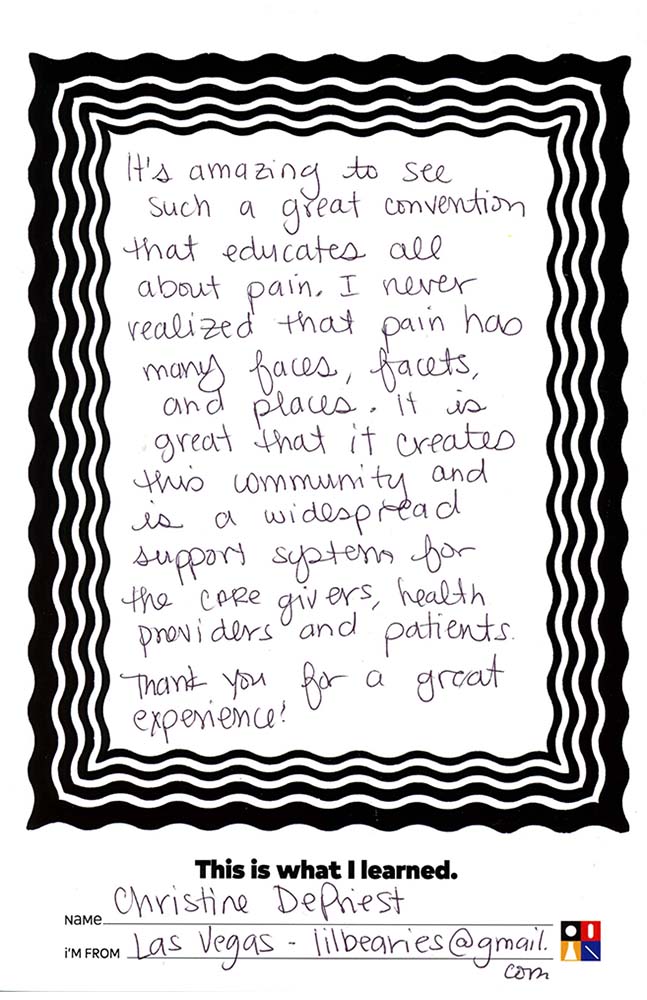 It's amazing to see
such a great convention
that educates all
about pain. I never
realized that pain has
many faces, facets,
and places. It is
great that it creates
this community and
is a widespread
support system for
the care givers, health
providers and patients.
Thank you for a great
experience!
This is what I learned.
NAME Christine DePriest
i'M FROM Las Vegas - lilbearies@gmail.
com